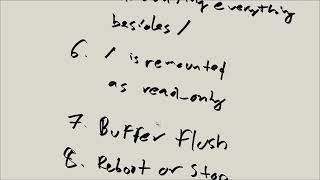 everything
besides /
6. / is remounted
as read-only
7. Buffer Flush
8. Reboot or Stop